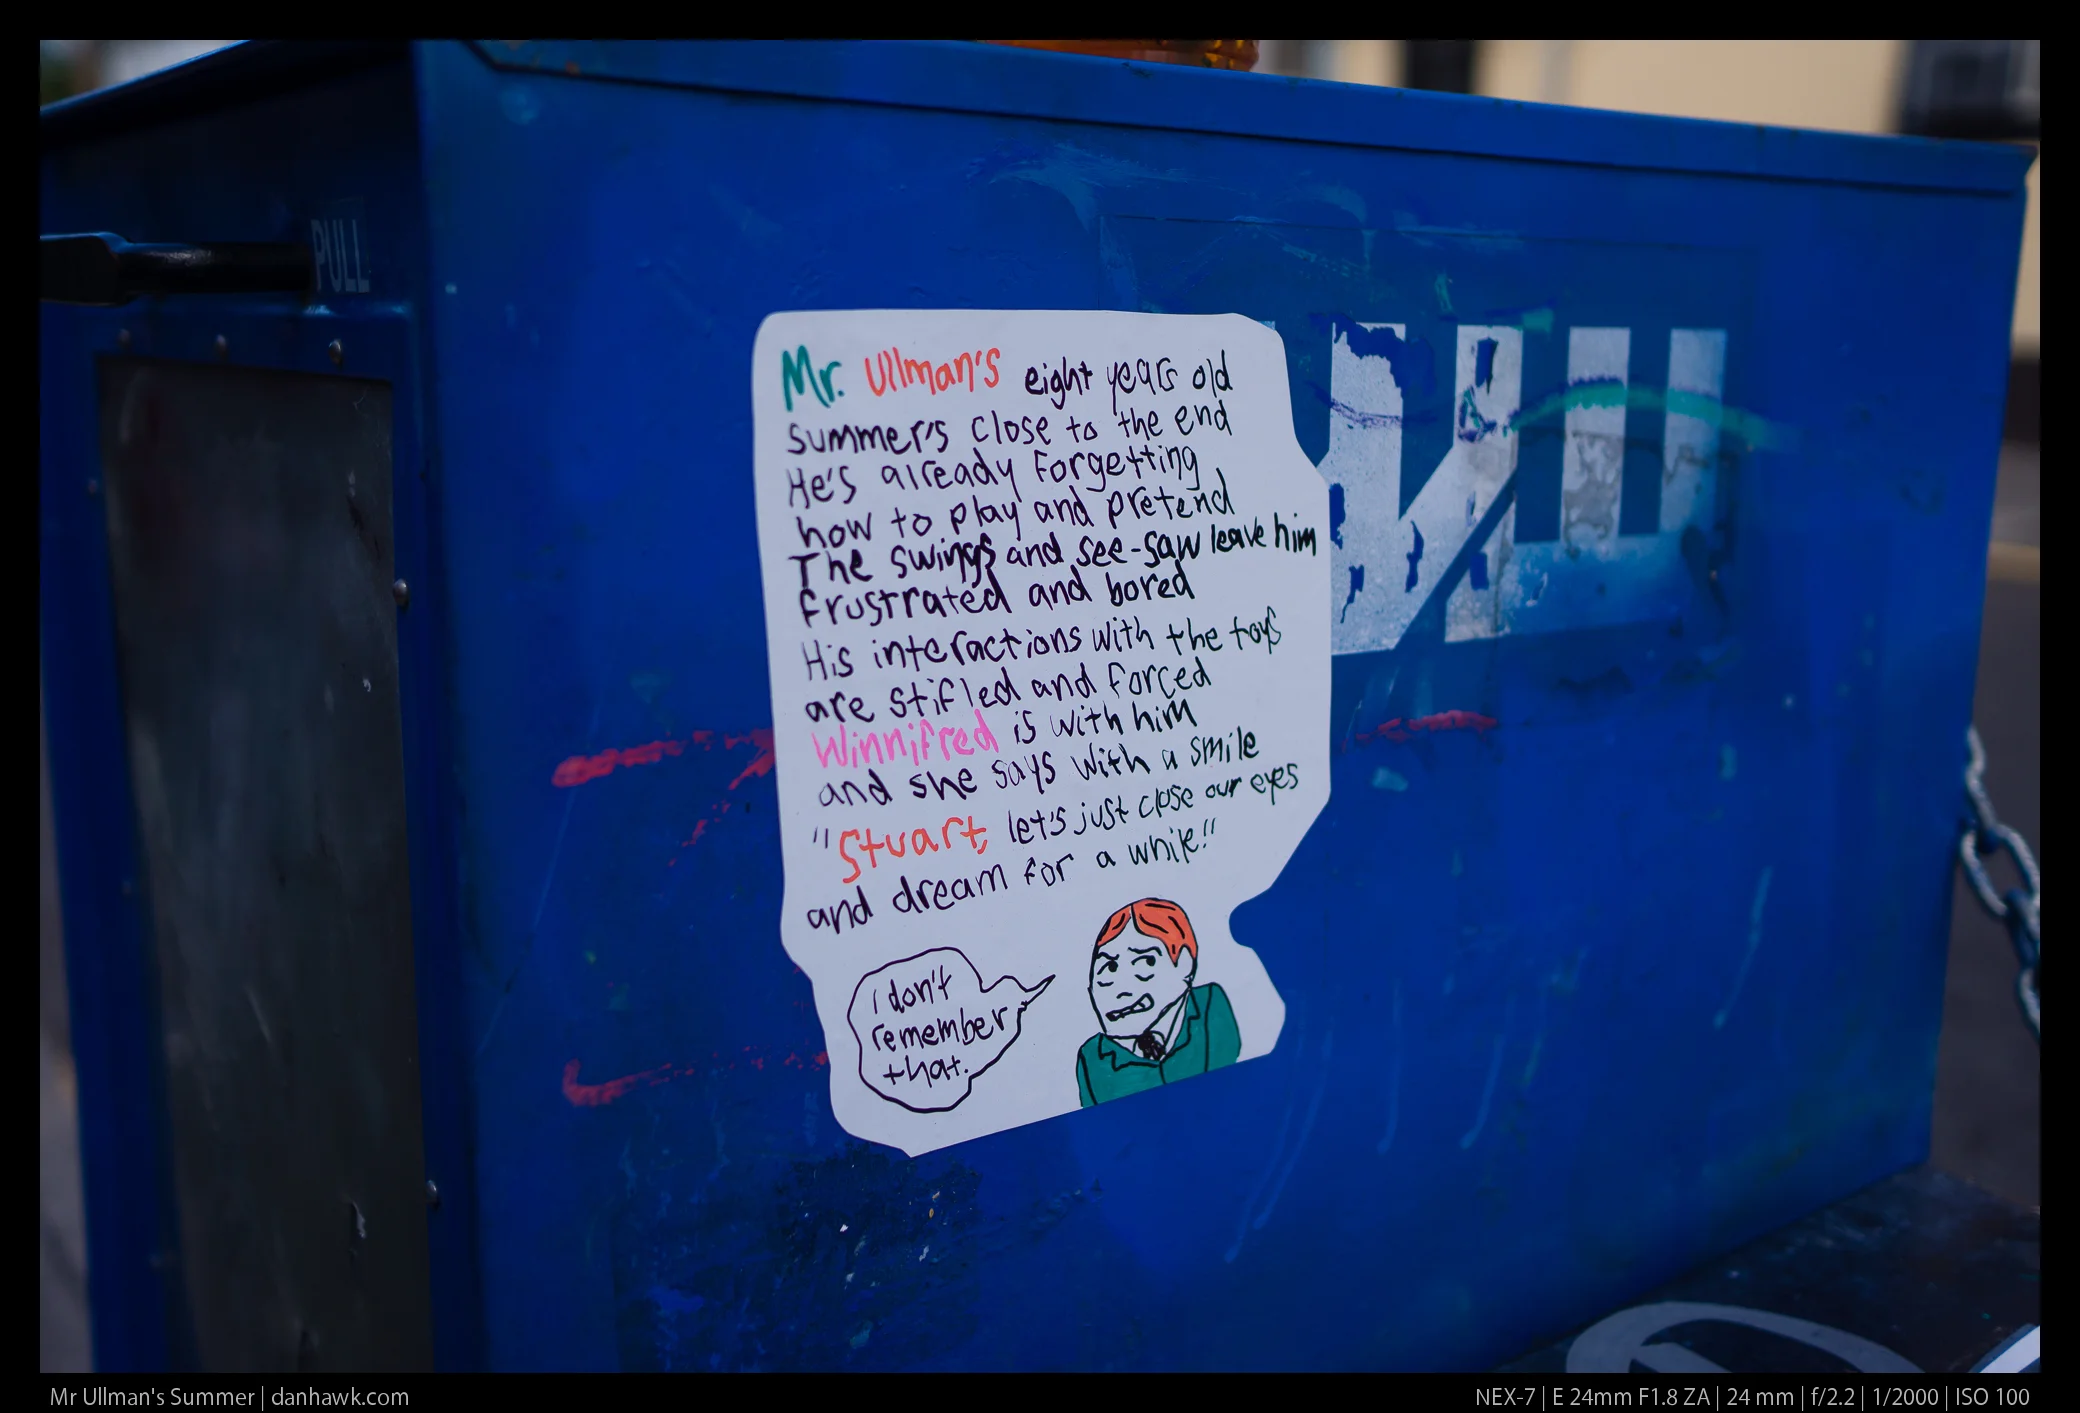 PULL
Mr. Ullman's eight years old
summer's close to the end
He's already forgetting
how to play and pretend
The swings and see-saw leave him
frustrated and bored
His interactions with the toys
are stifled and forced
Winnifred is with him
and she says with a smile
"Stuart, let's just close our eyes
and dream for a while!"
i don't
remember
that.
Mr Ullman's Summer | danhawk.com
NEX-7 | E 24mm F1.8 ZA | 24 mm | f/2.2 | 1/2000 | ISO 100